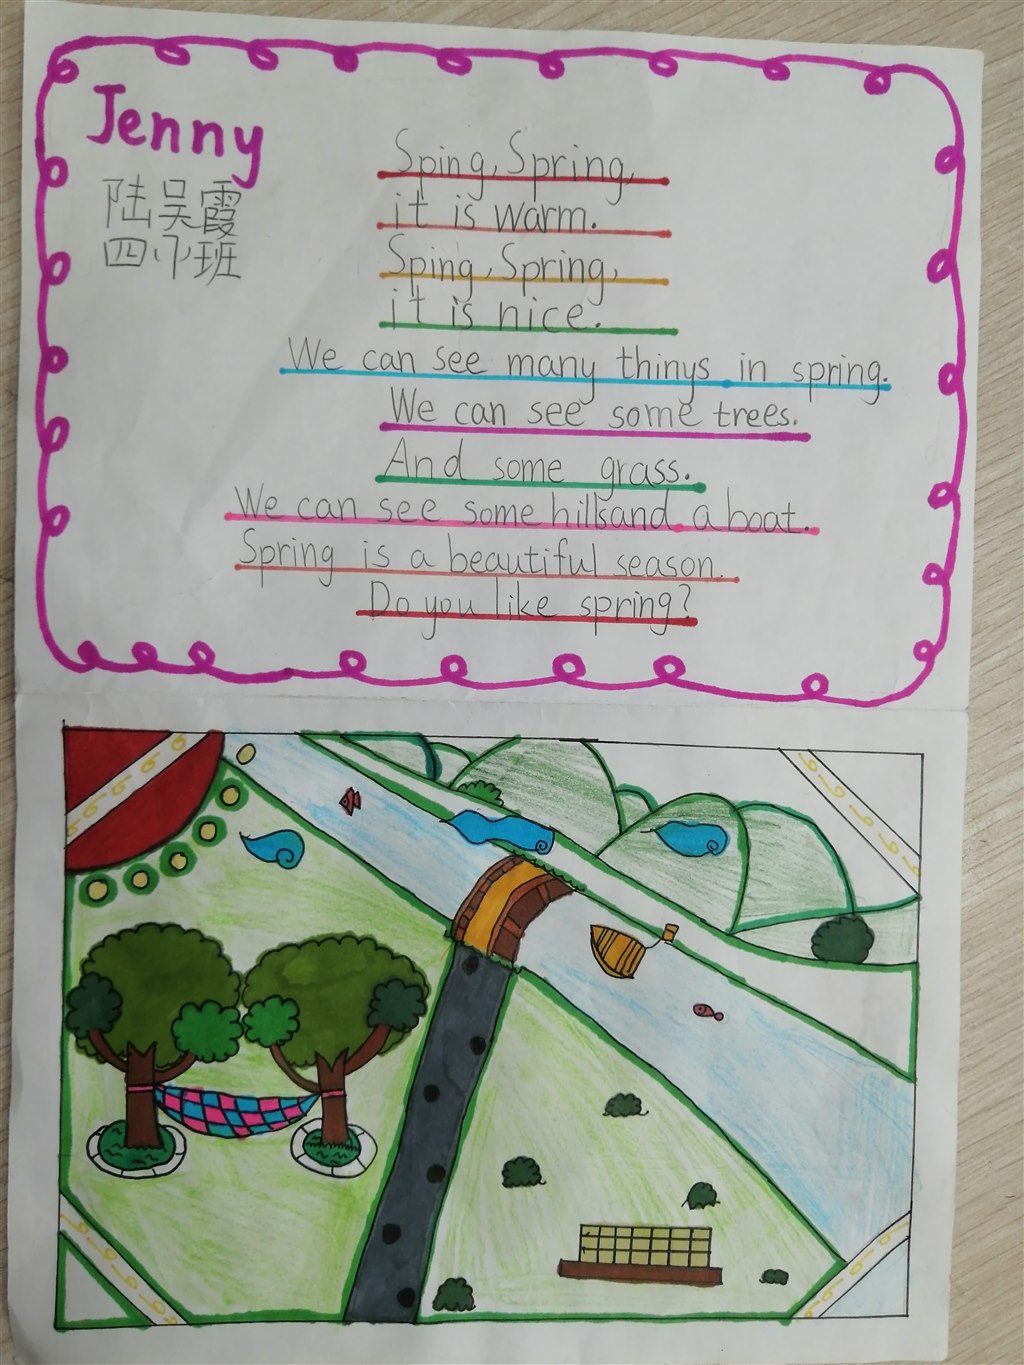 Jenny
陆吴霞
四(7)班
Sping, Spring,
it is warm.
Sping, Spring,
it is nice.
We can see many thinys in spring.
We can see some trees.
And some grass.
We can see some hillsand a boat.
Spring is a beautiful season.
Do you like spring?